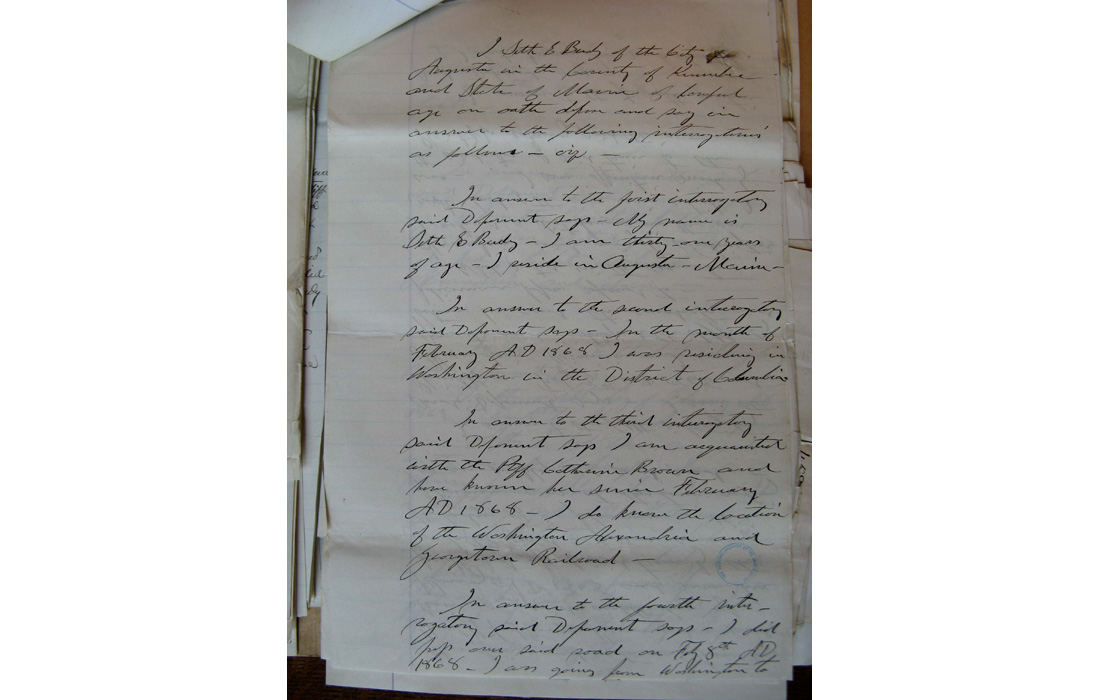 I Seth E Beedy of the City of
Augusta in the County of Kennebec
and State of Maine of lawful
age on oath depose and say in
answer to the following interrogatories
as follows – viz –
In answer to the first interrogatory
said Deponent says – My name is
Seth E Beedy – I am thirty-one years
of age – I reside in Augusta – Maine –
In answer to the second interrogatory
said Deponent says – In the month of
February AD 1868 I was residing in
Washington in the District of Columbia
In answer to the third interrogatory
said Deponent says I am acquainted
with the Plff Catherine Brown and
have known her since February
AD 1868 – I do know the location
of the Washington Alexandria and
Georgetown Railroad –
In answer to the fourth inter–
rogatory said Deponent says – I did
pass over said road on Feby 8th AD
1868 – I was going from Washington to